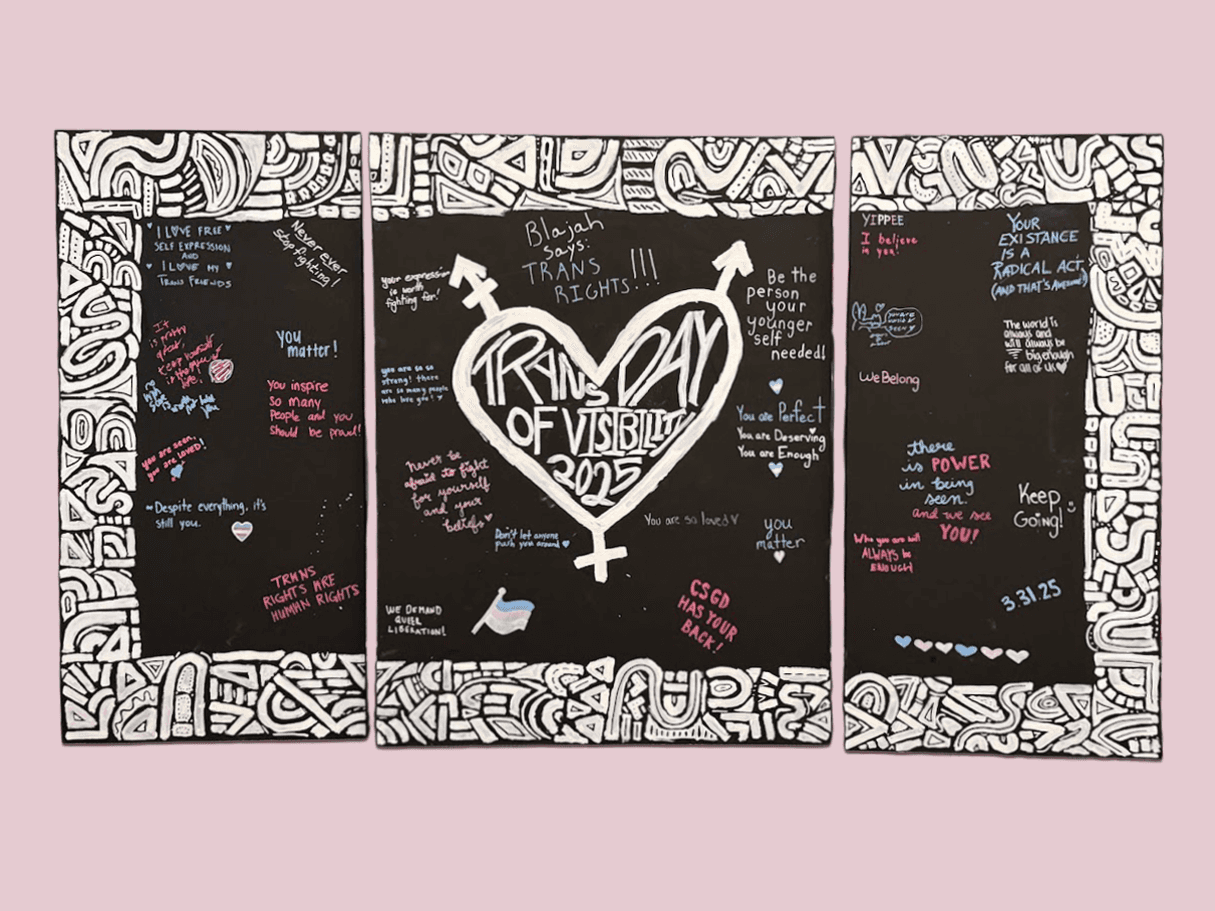 I LOVE FREE
SELF EXPRESSION
AND
I LOVE MY
TRANS FRIENDS
Never ever
stop fighting!
It
is pretty
great,
keep yourself
in the
you
matter!
You inspire
so many
People and you
should be proud!
you are seen,
you are LOVED!
~Despite everything, it's
still you.
TRANS
RIGHTS ARE
HUMAN RIGHTS
Blajah
says:
TRANS
RIGHTS!!!
your expression
is worth
fighting for!
TRANS DAY
OF VISIBILITY
2025
Be the
person
your
younger
self
needed!
you are so so
strong! there
are so many people
who love you!
You are Perfect
You are Deserving
You are Enough
never be
afraid to fight
for yourself
and your
beliefs
Don't let anyone
push you around
You are so loved
you
matter
WE DEMAND
QUEER
LIBERATION!
CSGD
HAS YOUR
BACK!
YIPPEE
I believe
in you!
YOUR
EXISTANCE
IS A
RADICAL ACT
(AND THAT'S AWESOME!)
The world is
always and
will always be
big enough
for all of us
We Belong
there
is POWER
in being
seen.
and we see
YOU!
Keep
Going!
Who you are will
ALWAYS be
ENOUGH
3.31.25